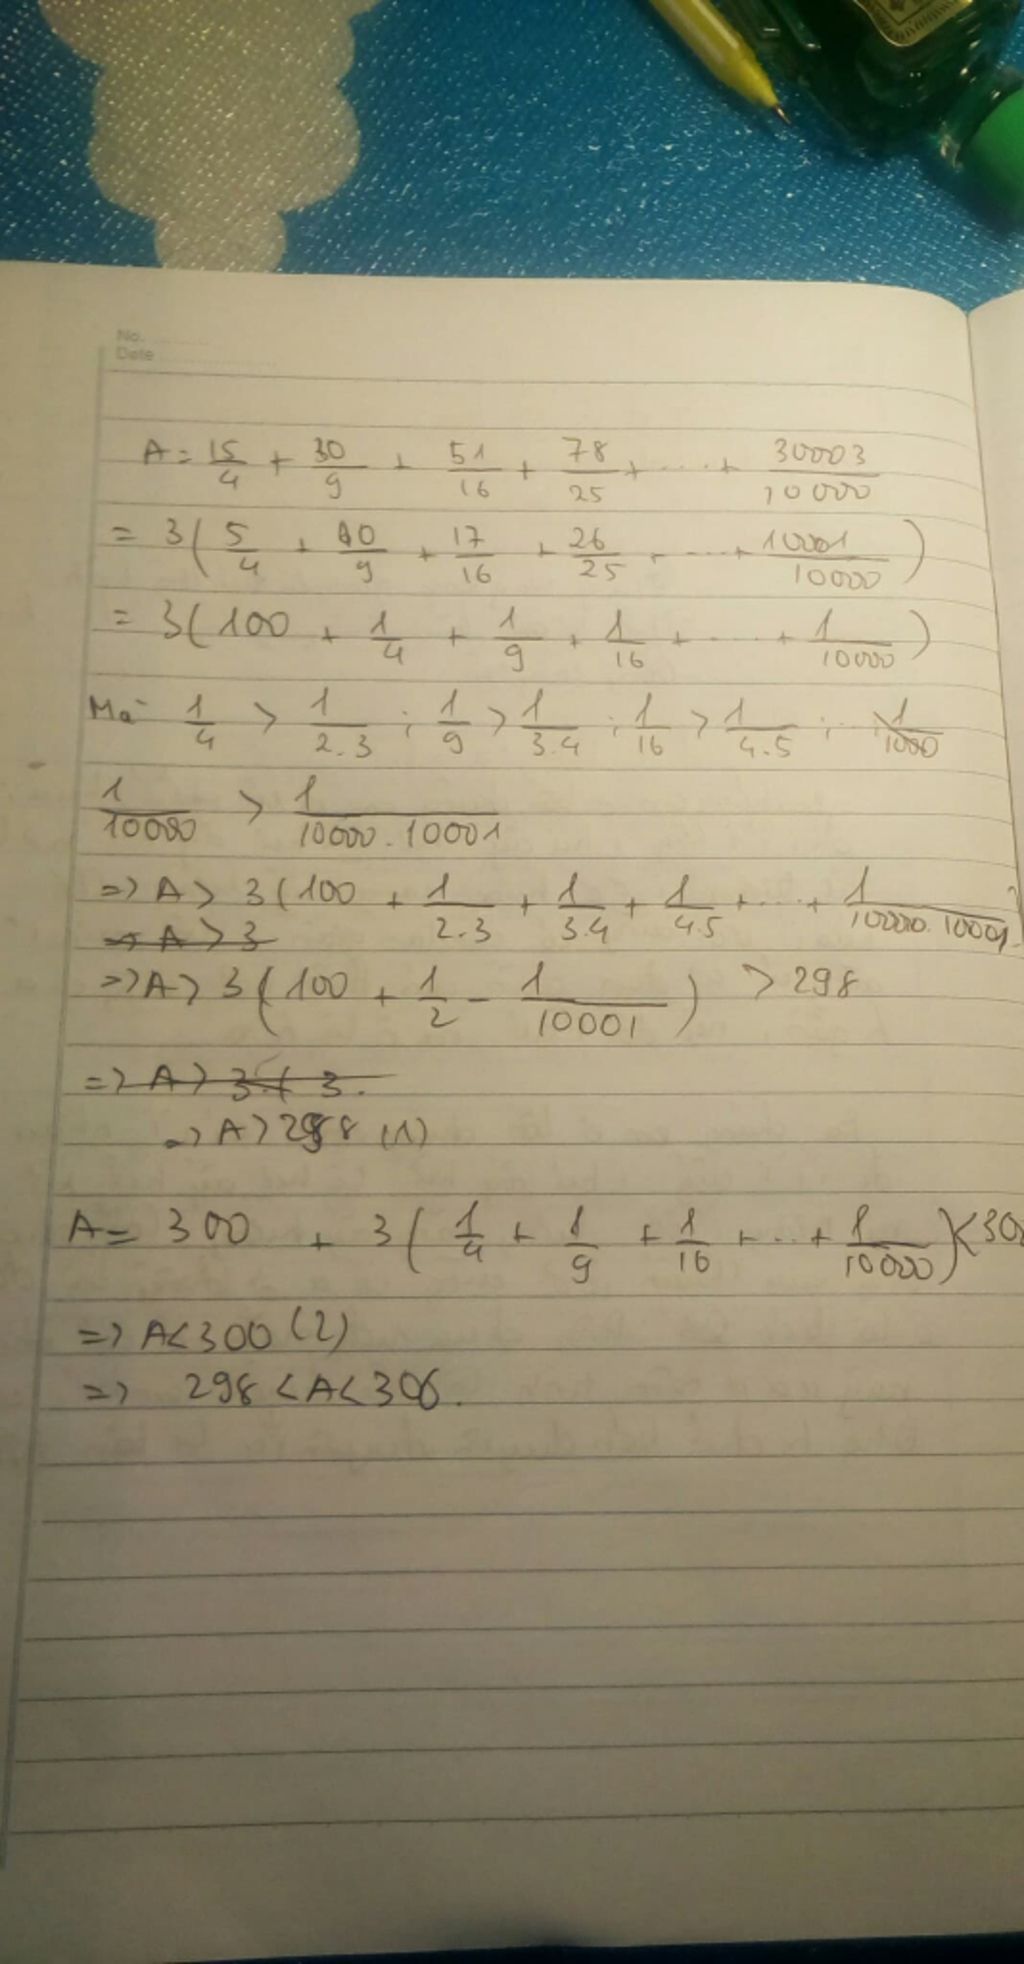 No.
Date
A = 15/4 + 30/9 + 51/16 + 78/25 + .... + 30003/10000
= 3(5/4 + 10/9 + 17/16 + 26/25 + .... + 10001/10000)
= 3(100 + 1/4 + 1/9 + 1/16 + .... + 1/10000)
Mà 1/4 > 1/2.3 ; 1/9 > 1/3.4 ; 1/16 > 1/4.5 ; ... 1/1000
1/10000 > 1/10000.10001
=> A > 3(100 + 1/2.3 + 1/3.4 + 1/4.5 + ... + 1/10000.10001
=> A > 3
=> A > 3(100 + 1/2 - 1/10001) > 298
=> A > 3.( 3.
=> A > 298 (1)
A = 300 + 3(1/4 + 1/9 + 1/16 + ... + 1/10000) < 30
=> A < 300 (2)
=> 298 < A < 306.